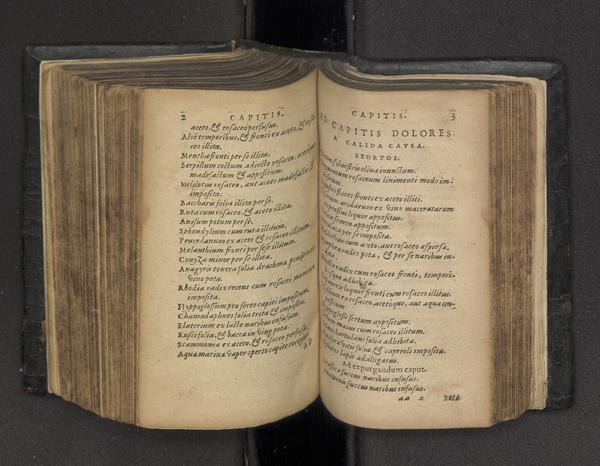 2 CAPITIS.
aceto, & rosaceo perfusus.
Aloë temporibus, & fronti ex aceto, &
ceo illita.
Mentha fronti per se illita.
Serpillum coctum adiecto rosaceo,
madefactum & appositum.
Melilotus rosaceo, aut aceto madefacta,
imposita.
Baccharis folia illita per se.
Ruta cum rosaceo, & aceto illita.
Anisum potum per se.
Sphondylium cum ruta illitum.
Peucedanum ex aceto & rosaceo illitum.
Melanthium fronti per se se illitum.
Conyza minor per se illita.
Anagyri tenera folia drachma pondere ex
vino pota.
Rhodia radix recens cum rosaceo
imposita.
Hyppoglossum pro serto capiti impositum.
Chamædaphnes folia trita & imposita.
Elaterium ex lacte naribus infusum.
Rusci folia, & bacca in vino pota.
Scammonia ex aceto, & rosaceo perfusa.
Aqua marina vapor operto capite receptus.
AD
CAPITIS. 3
AD CAPITIS DOLORES
A CALIDA CAVSA
EXORTOS.
siluestris oliua inunctum.
rosaceum linimenti modo im-
flores fronti ex aceto illiti.
aridarum ex vino maceratarum
liquor appositus.
appositum.
per se imposita.
cum aceto, aut rosaceo aspersa.
radix pota, & per se naribus in-
radix cum rosaceo fronti, tempori-
adhibita.
liquor fronti cum rosaceo illitus.
ex rosaceo, acetoque, aut aqua im-
sertum appositum.
cum rosaceo illitum.
hortulani folia adhibita.
folia, & capreoli imposita.
lapis adalligatus.
Ad expurgandum caput.
succus naribus infusus.
succus naribus infusus.
aa 2